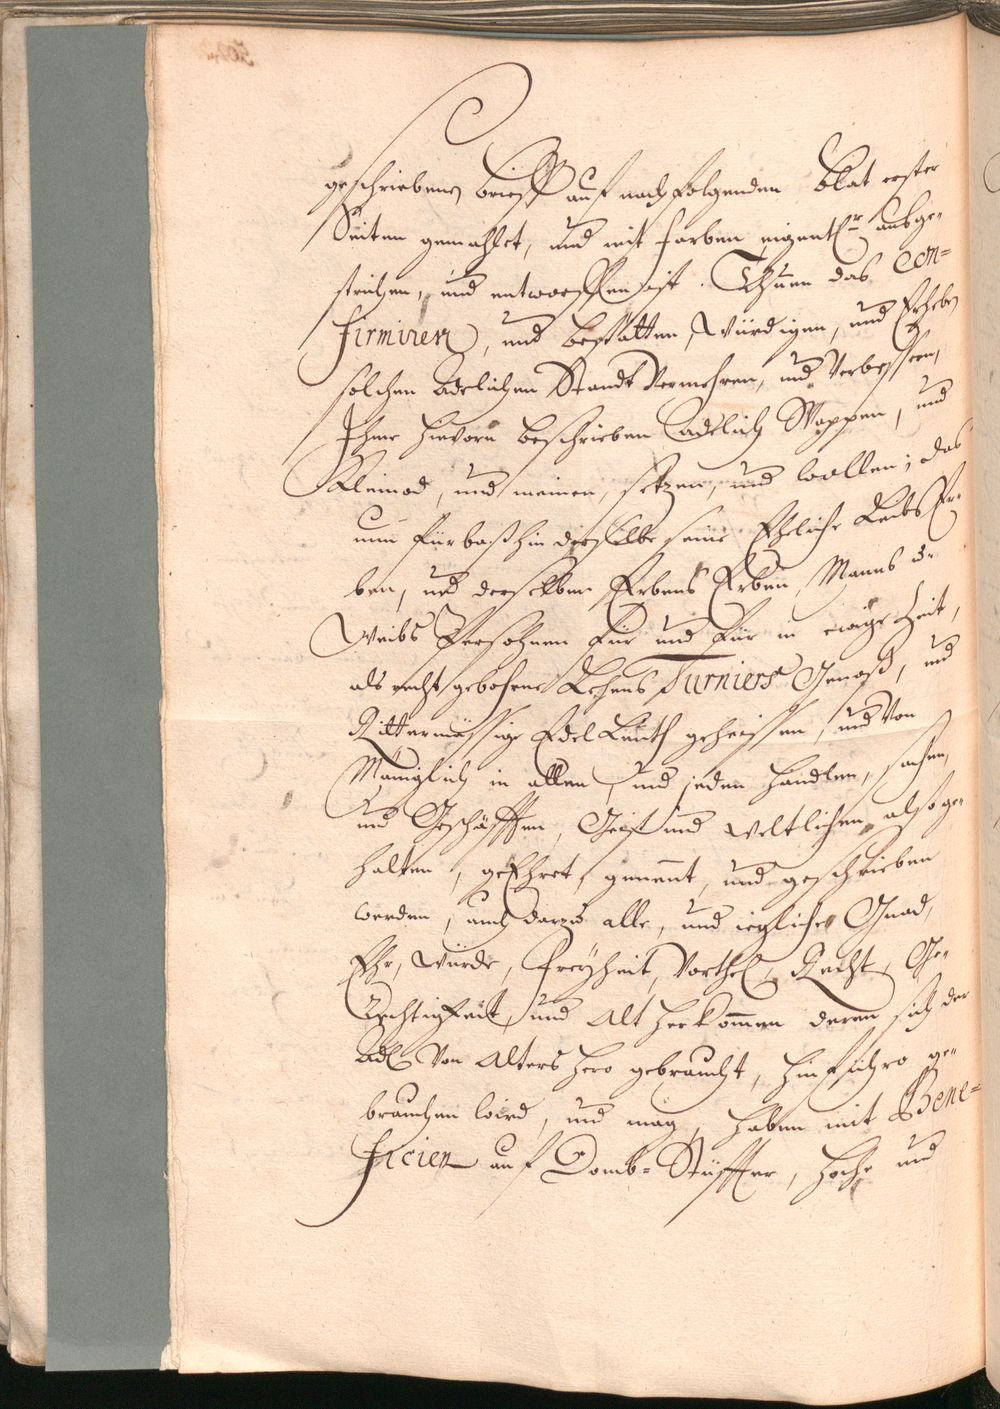 geschriebenen brieff auf nachfolgenden Blat erster
Seiten gemahlet, und mit farben eigentl:r ausge-
strichen, und entworffen ist. Thuen das Con-
firmiren, und bestätten, Würdigen, und Erheben
solchen Adelichen Standt Vermehren, und Verbesseren,
Ihme hievorn beschrieben Adelich Wappen, und
Kleinod, und meinen, setzen, und wollen; das
nun fürbaßhin derselbe seine Eheliche Leibs Er-
ben, und derselben Erbens Erben, Manns u:
Weibs Persohnen für und für in ewige Zeit,
als recht gebohrne Lehens Turniers Genoß, und
Rittermässige Edel Leuth geheissen, und Von
Mäniglich in allen, und jeden handlen, sachen,
und Geschäfften, Geist und weltlichen also ge-
halten, geEhret, genennt, und geschrieben
werden, auch darzu alle, und iegliche Gnad,
Ehr, Würde, Freyheit, Vorthel, Recht, Ge-
rechtigkeit, und Alt herkommen deren sich der
Adl Von Alters hero gebraucht, hinführo ge-
brauchen wird, und mag, haben mit Bene-
ficien auf Domb-Stüffter, hoche und